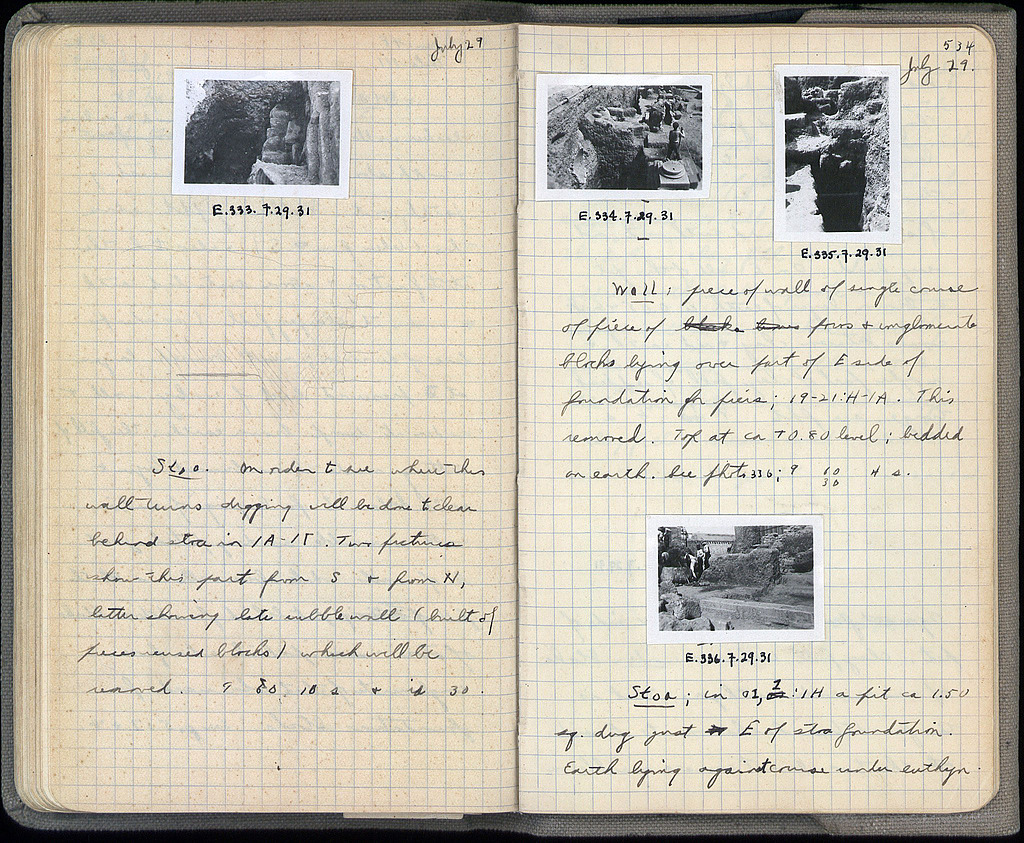 July 29
E.333.7.29.31
Stoa. In order to see where this
wall turns digging will be done to clear
behind stoa in 1A-1Γ. Two pictures
show this part from S + from N,
latter showing late rubble wall (built of
pieces reused blocks) which will be
removed. 9 80. 10 s + 30.
534
July 29.
E.334.7.29.31
E.335.7.29.31
Wall: piece of wall of single course
of piece of poros + conglomerate
blocks lying over part of E side of
foundation for piers; 19-21:H-1A. This
removed. Top at ca +0.80 level; bedded
on earth. See photo 336; 9 10 30 4 s.
E.336.7.29.31
Stoa; in 1H a pit ca 1.50
sq. dug just E of stoa foundation.
Earth lying against course under euthyn.